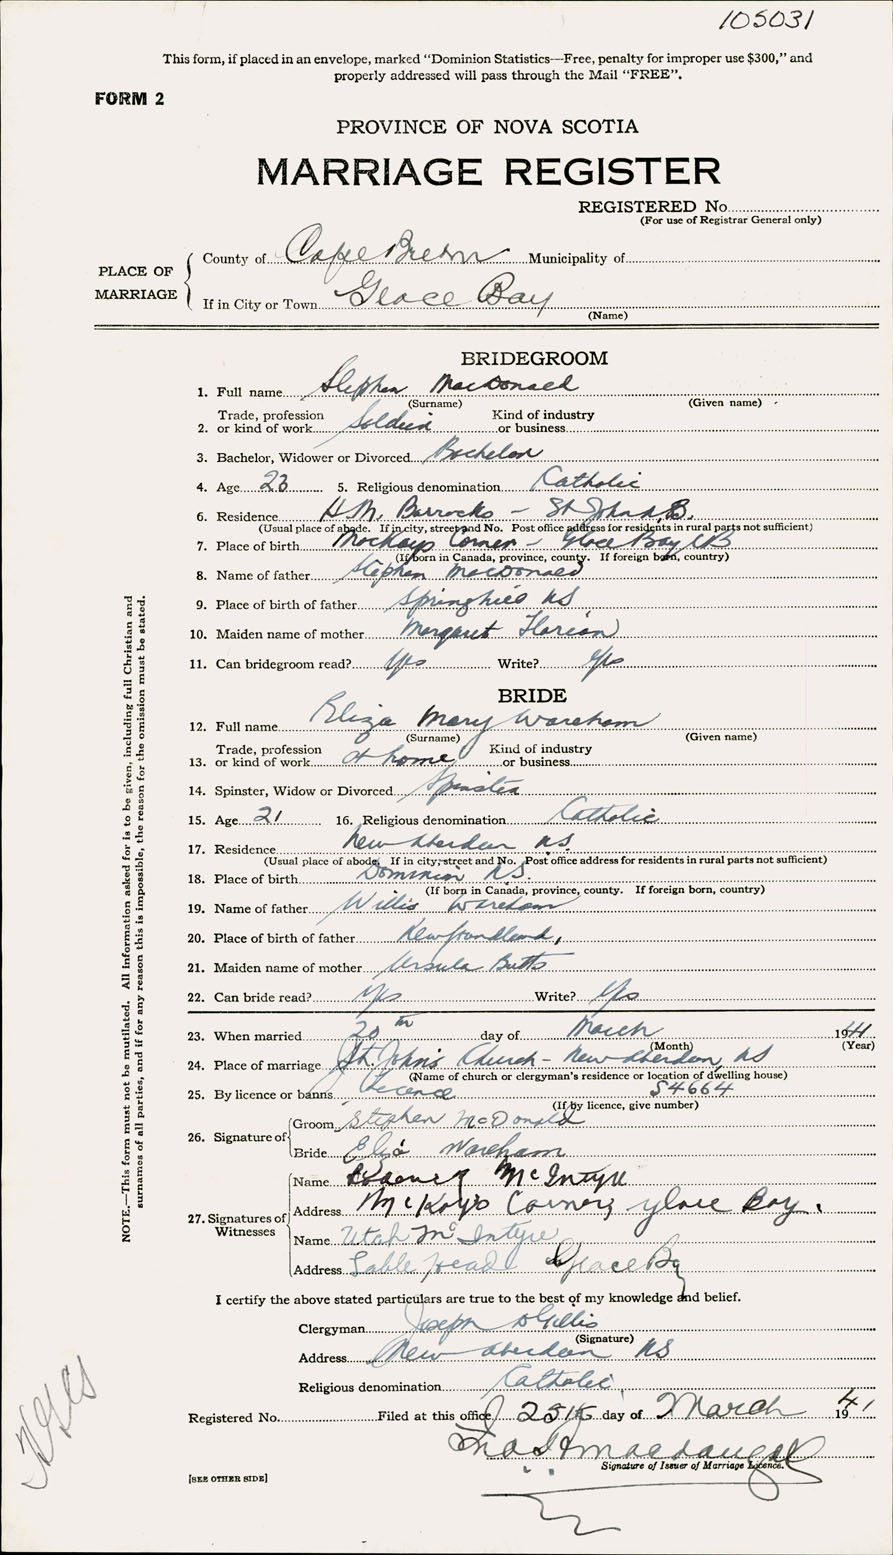 105031
This form, if placed in an envelope, marked "Dominion Statistics—Free, penalty for improper use $300," and
properly addressed will pass through the Mail "FREE".
FORM 2
PROVINCE OF NOVA SCOTIA
MARRIAGE REGISTER
REGISTERED No.
(For use of Registrar General only)
PLACE OF MARRIAGE
County of Cape Breton Municipality of
If in City or Town Glace Bay
(Name)
BRIDEGROOM
1. Full name Stephen MacDonald
(Surname) (Given name)
2. Trade, profession or kind of work Soldier Kind of industry or business
3. Bachelor, Widower or Divorced Bachelor
4. Age 23 5. Religious denomination Catholic
6. Residence H.M. Barracks - St John N.B.
(Usual place of abode. If in city, street and No. Post office address for residents in rural parts not sufficient)
7. Place of birth MacKays Corner - Glace Bay CB
(If born in Canada, province, county. If foreign born, country)
8. Name of father Stephen MacDonald
9. Place of birth of father Springhill NS
10. Maiden name of mother Margaret
11. Can bridegroom read? Yes Write? Yes
BRIDE
12. Full name Eliza Mary Wareham
(Surname) (Given name)
13. Trade, profession or kind of work at home Kind of industry or business
14. Spinster, Widow or Divorced Spinster
15. Age 21 16. Religious denomination Catholic
17. Residence New Aberdeen NS
(Usual place of abode. If in city, street and No. Post office address for residents in rural parts not sufficient)
18. Place of birth Dominion N.S.
(If born in Canada, province, county. If foreign born, country)
19. Name of father Willis Wareham
20. Place of birth of father Newfoundland,
21. Maiden name of mother Ursula Butts
22. Can bride read? Yes Write? Yes
23. When married 20th day of March 1941
(Month) (Year)
24. Place of marriage St. John's Church - New Aberdeen, NS
(Name of church or clergyman's residence or location of dwelling house)
25. By licence or banns Licence 54664
(If by licence, give number)
26. Signature of
Groom Stephen McDonald
Bride Eliza Wareham
27. Signatures of Witnesses
Name McIntyre
Address McKay's Corner, Glace Bay.
Name Utah McIntyre
Address Sable Head Glace Bay
I certify the above stated particulars are true to the best of my knowledge and belief.
Clergyman Joseph D Gillis
(Signature)
Address New Aberdeen NS
Religious denomination Catholic
Registered No. Filed at this office 25th day of March 1941
Signature of Issuer of Marriage Licence.
[SEE OTHER SIDE]
NOTE.—This form must not be mutilated. All information asked for is to be given, including full Christian and
surnames of all parties, and if for any reason this is impossible, the reason for the omission must be stated.